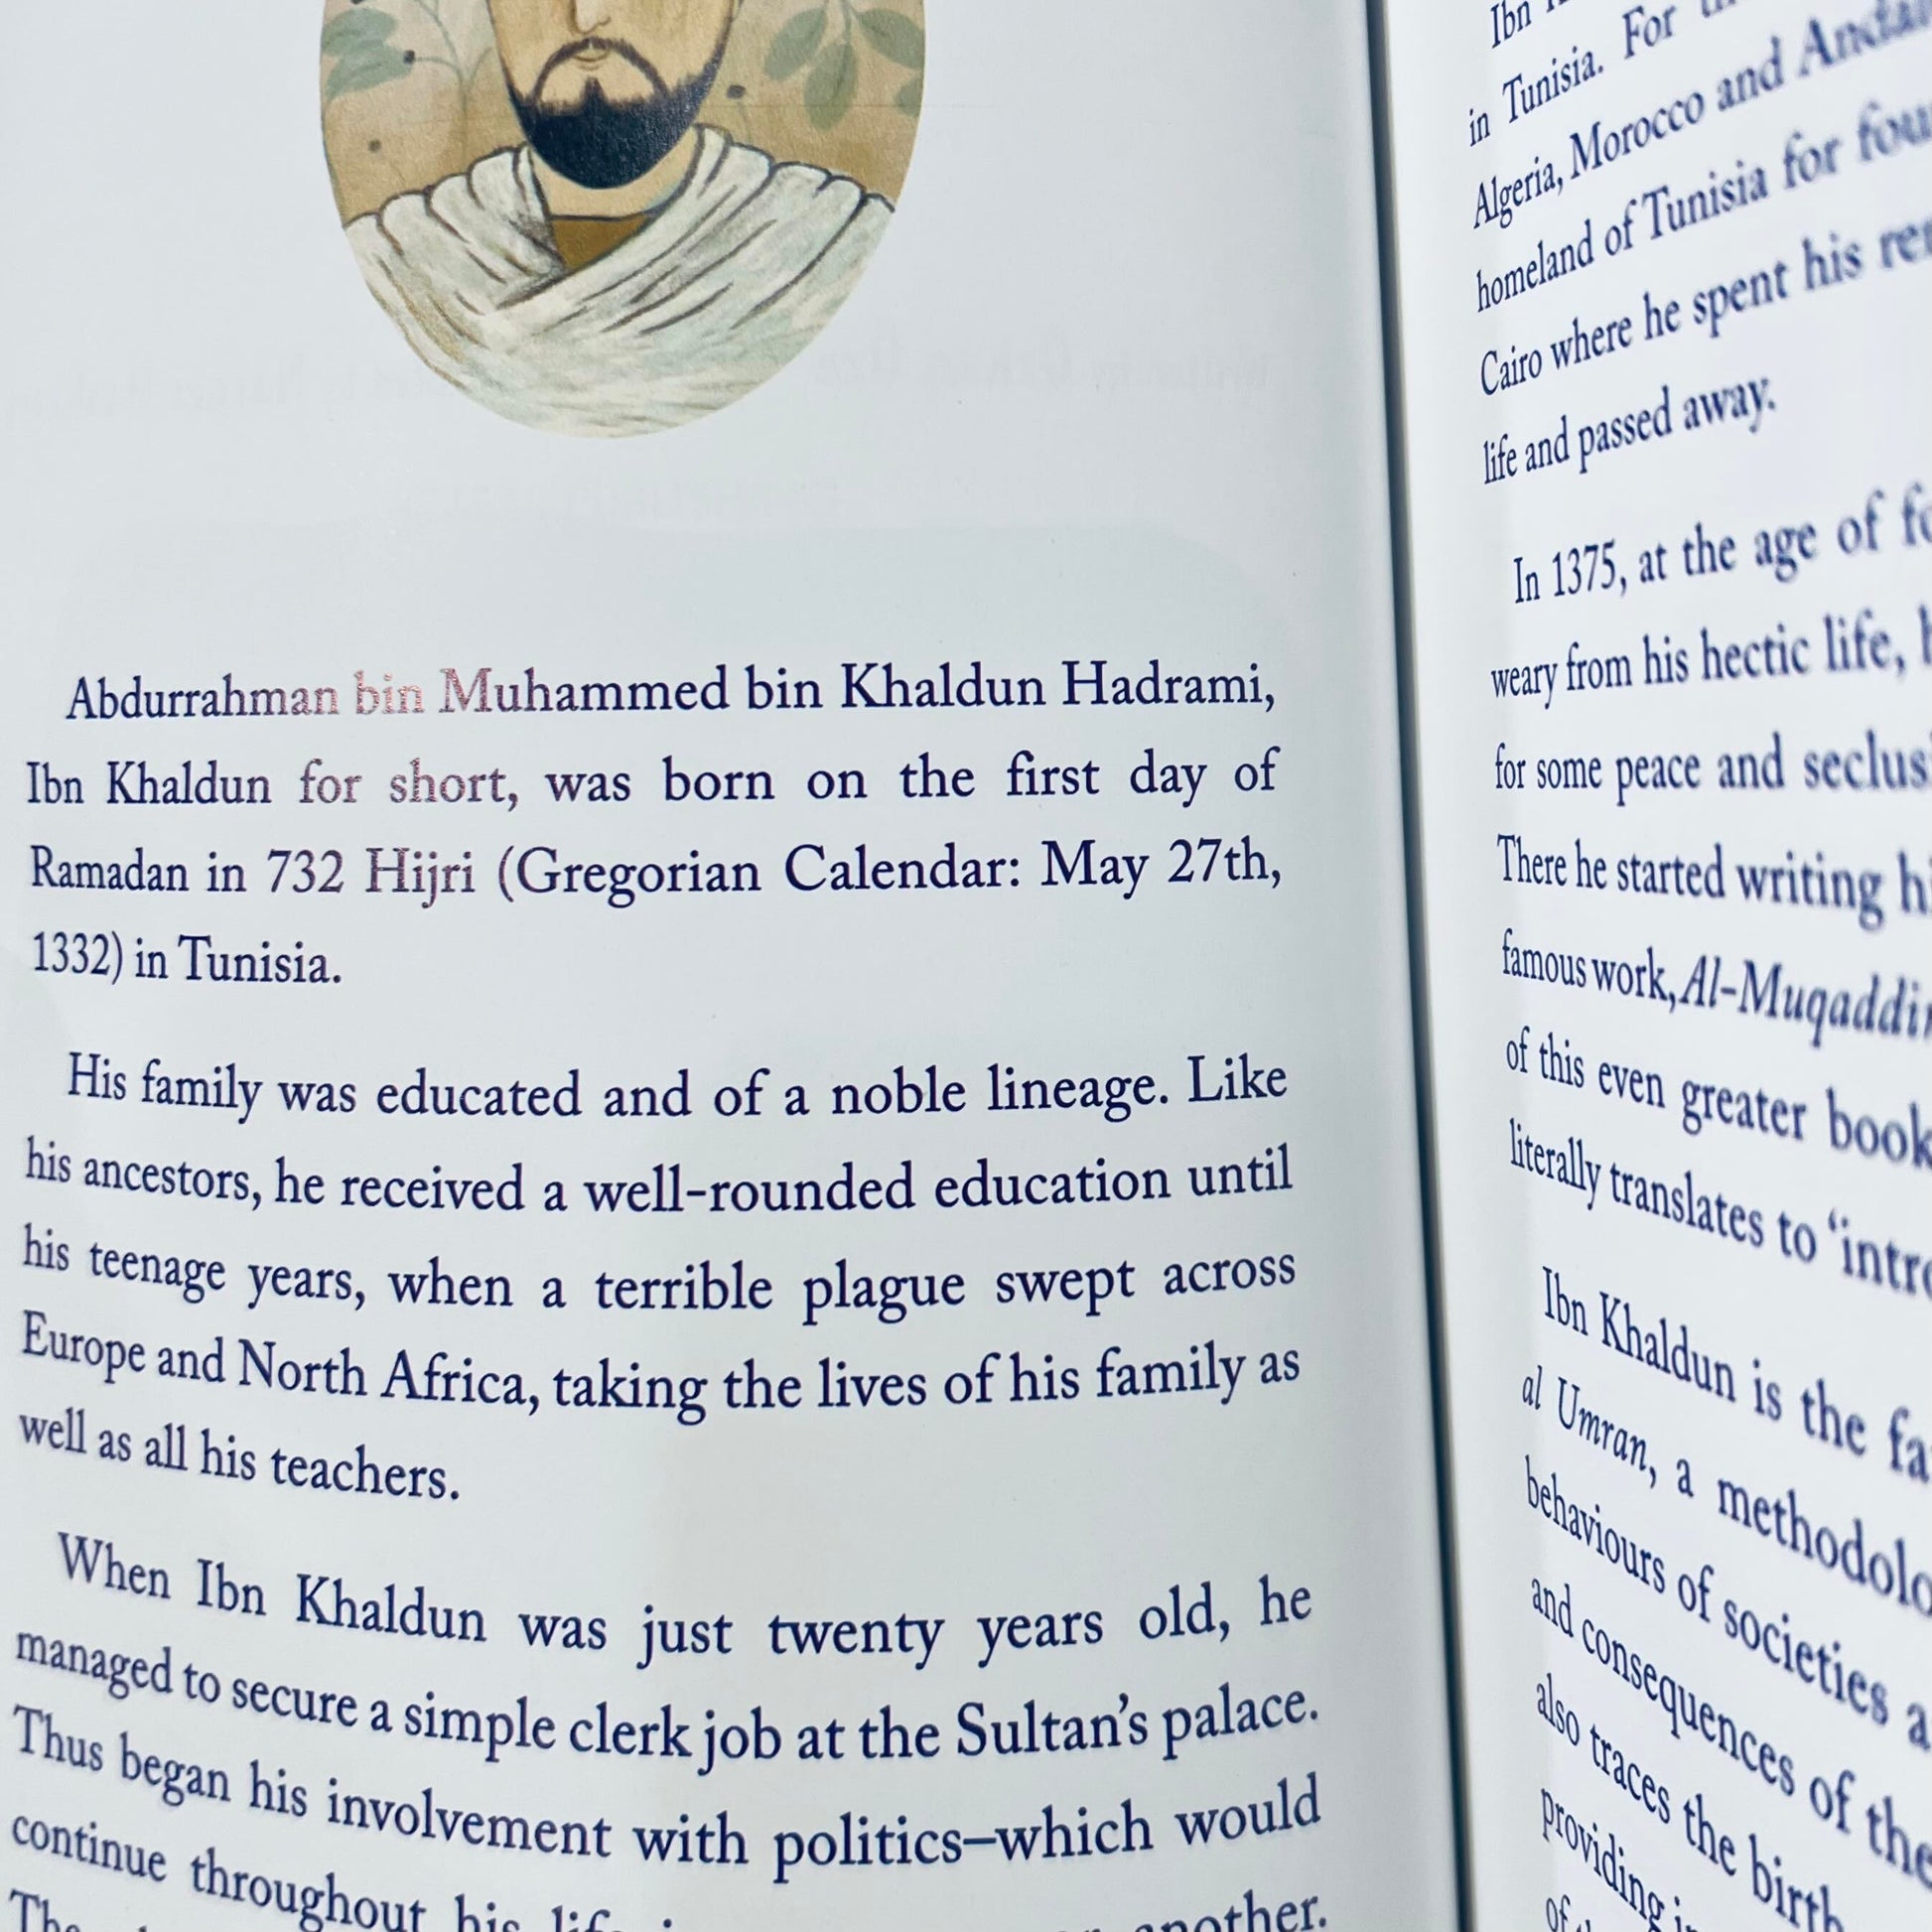 Abdurrahman bin Muhammed bin Khaldun Hadrami,
Ibn Khaldun for short, was born on the first day of
Ramadan in 732 Hijri (Gregorian Calendar: May 27th,
1332) in Tunisia.
His family was educated and of a noble lineage. Like
his ancestors, he received a well-rounded education until
his teenage years, when a terrible plague swept across
Europe and North Africa, taking the lives of his family as
well as all his teachers.
When Ibn Khaldun was just twenty years old, he
managed to secure a simple clerk job at the Sultan's palace.
Thus began his involvement with politics–which would
continue throughout his another.
Ibn
in Tunisia. For
Algeria, Morocco and
homeland of Tunisia for
Cairo where he spent his
life and passed away.
In 1375, at the age of
weary from his hectic life,
for some peace and
There he started writing
famous work,
of this even greater
literally translates to
Ibn Khaldun is the
al Umran, a
behaviours of societies
and consequences of
also traces the birth
providing
of